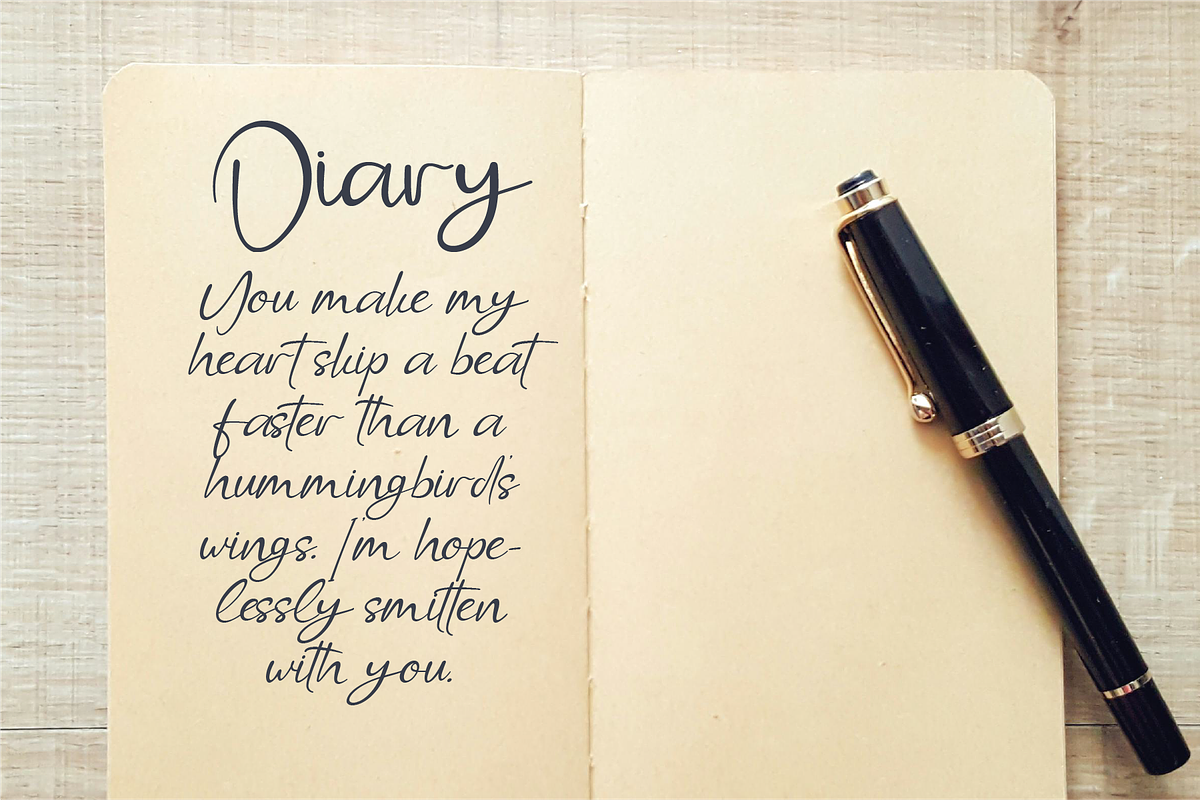 Diary
You make my
heart skip a beat
faster than a
hummingbird's
wings. I'm hope-
lessly smitten
with you.